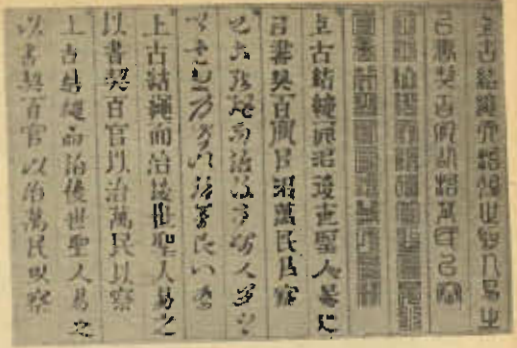 上古結繩而治後世聖人易之
以書契百官以治萬民以察
上古結繩而治後世聖人易之
以書契百官以治萬民以察
上古結繩而治後世聖人易之
以書契百官以治萬民以察
上古結繩而治後世聖人易之
以書契百官以治萬民以察
上古結繩而治後世聖人易之
以書契百官以治萬民以察